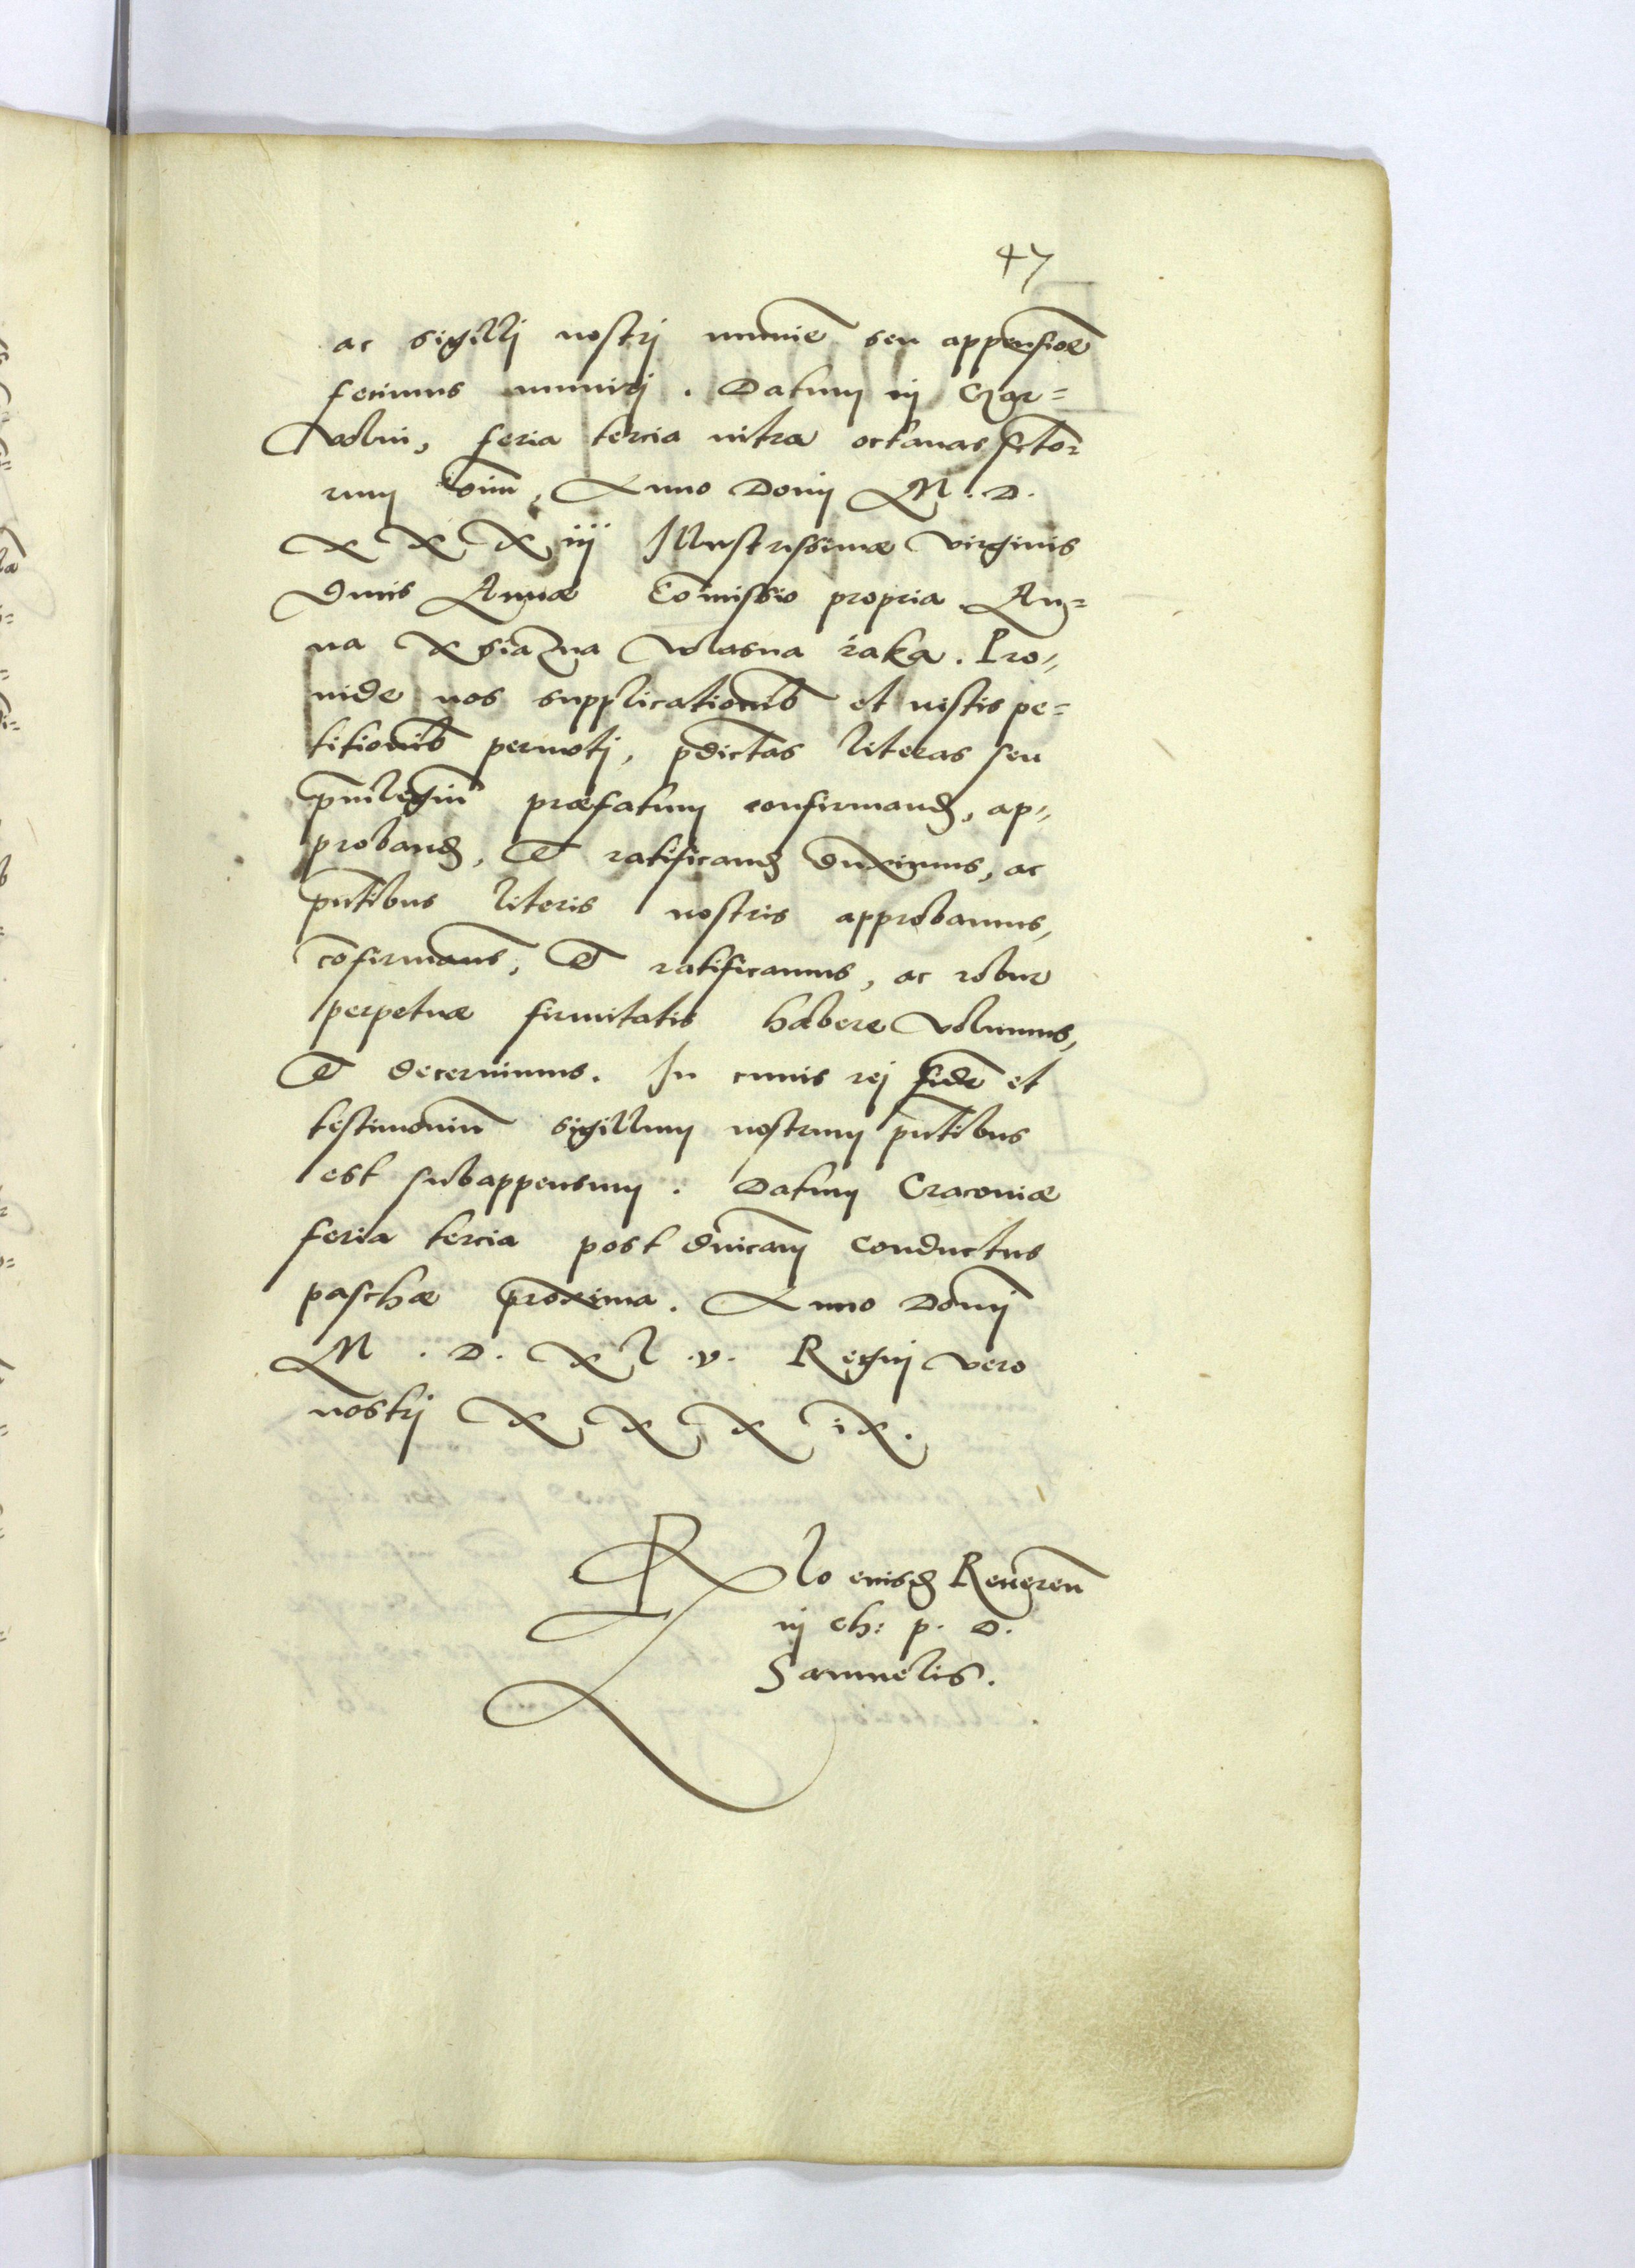 47
ac sigillj nostrj munīe seu appensiōe
fecimus munirj . Datum in Czar=
Wolin, feria tercia intra octauas sc̄to=
rum oīm, Anno Domi M . D .
X X X iij Illustrissimæ virginis
Duc̄is Annæ Com̄issio propria An=
na Xsiazna wlasna raka . Pro=
uide nos supplicationib et iustis pe=
titionib permotj, p̄dictas literas seu
p̄uilegiū præfatum confirmand, ap=
proband, Et ratificand duximus, ac
p̄ntibus literis nostris approbamus,
cōfirmam̄s, Et ratificamus, ac robur
perpetuæ firmitatis habere volumus,
Et decernimus . In cuius rej fidē et
testimoniū sigillum nostrum p̄ntibus
est subappensum . Datum Cracoviæ
feria tercia post dn̄icam conductus
paschæ proxima . Anno Domj
M . D . X l . v . Regnj vero
nostrj X X X iX .
Rlo eiusd Reueren
in ch: p . D .
Samuelis .